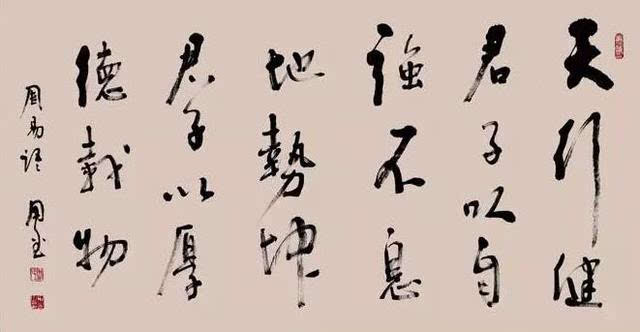 天行健
君子以自
強不息
地勢坤
君子以厚
德載物
周易語